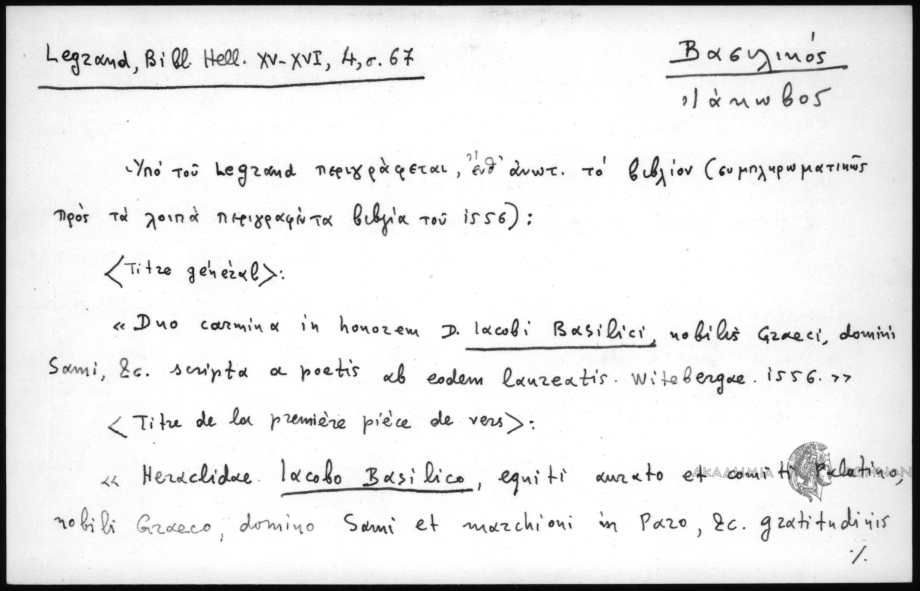 Legrand, Bibl. Hell. XV-XVI, 4, σ. 67
Βασιλικός
Ἰάκωβος
Ὑπό τοῦ Legrand περιγράφεται, ἔνθ' ἀνωτ. τό βιβλίον (συμπληρωματικῶς
πρός τά λοιπά περιγραφέντα βιβλία τοῦ 1556):
<Titre général>:
« Duo carmina in honorem D. Iacobi Basilici, nobilis Graeci, domini
Sami, &c. scripta a poetis ab eodem laureatis. Witebergae. 1556. »
< Titre de la première pièce de vers>:
« Heraclidae Iacobo Basilico, equiti aurato et comiti Palatino,
nobili Graeco, domino Sami et marchioni in Paro, &c. gratitudinis
./.
ΑΚΑΔΗΜΙΑ